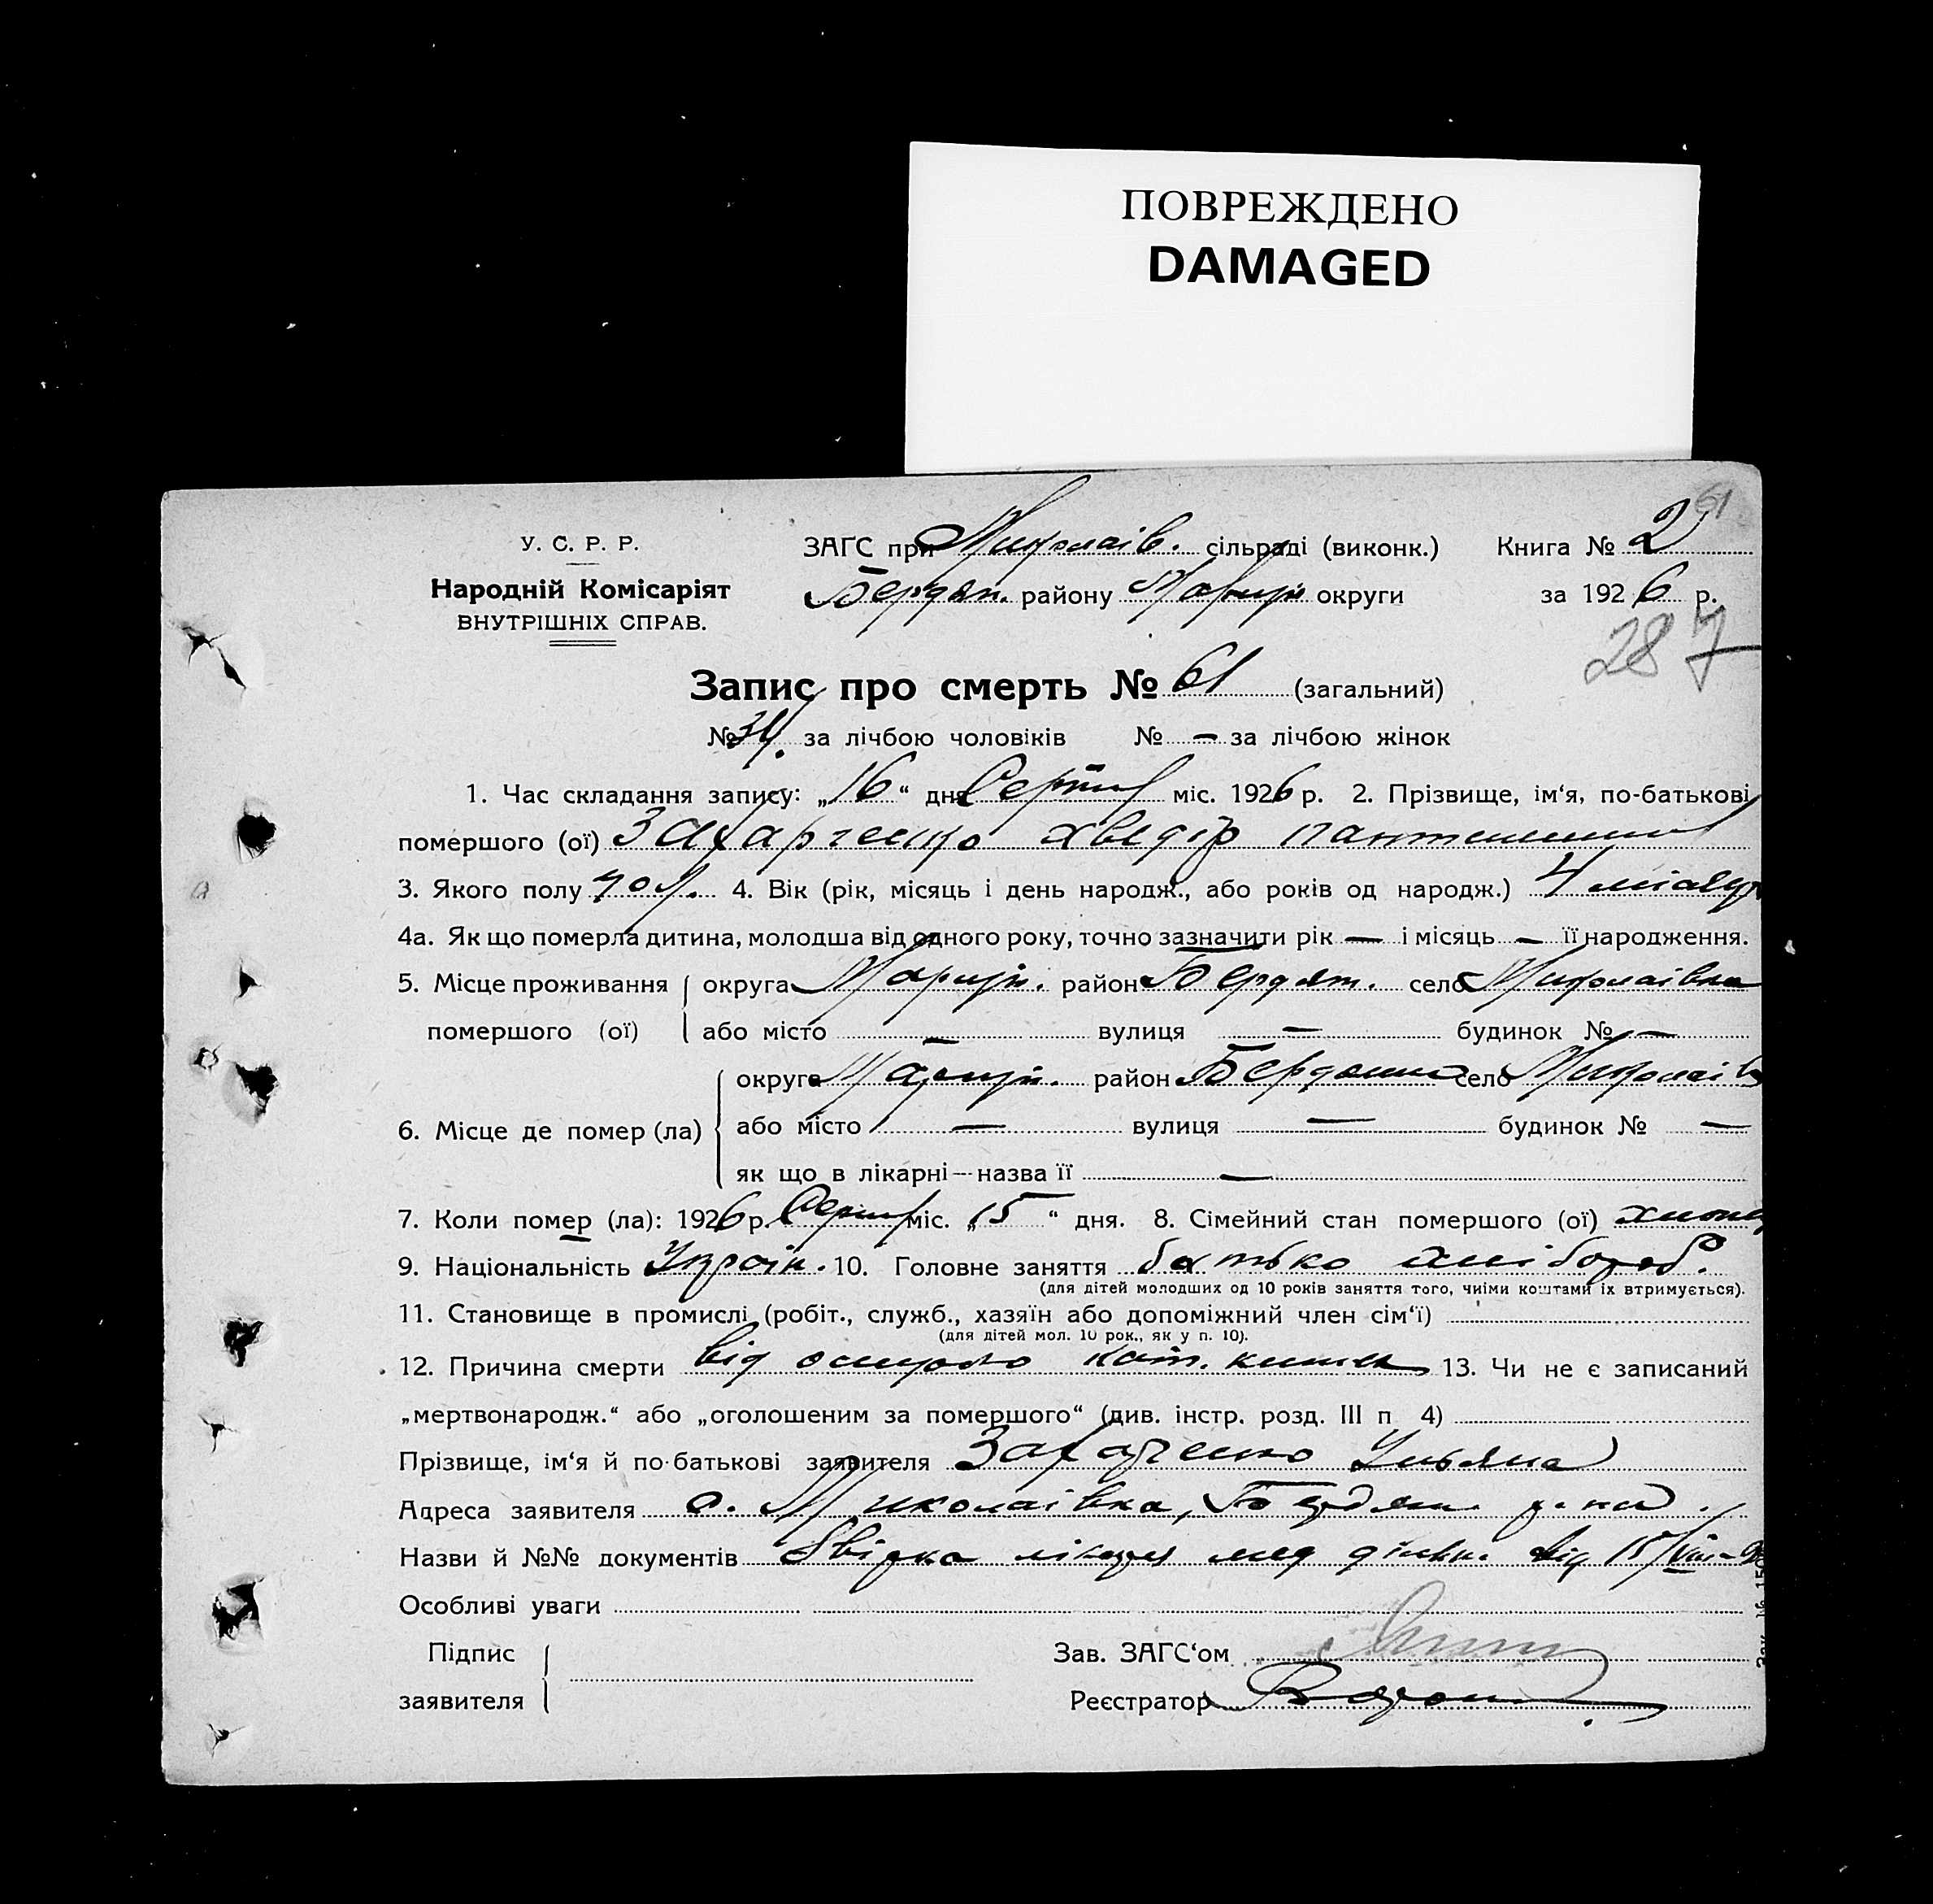 ПОВРЕЖДЕНО
DAMAGED
61
У. С. Р. Р.
Народній Комісаріят
ВНУТРІШНІХ СПРАВ.
ЗАГС при Миколаів. сільраді (виконк.) Книга № 2
Бердян. району Маріуп округи за 1926 р.
287
Запис про смерть № 61 (загальний)
№ 34. за лічбою чоловіків № — за лічбою жінок
1. Час складання запису: „16“ дня Серпня міс. 1926 р. 2. Прізвище, ім‘я, по-батькові
помершого (ої) Захарченко Хведір
3. Якого полу чол. 4. Вік (рік, місяць і день народж., або років од народж.) 4 місяця
4а. Як що померла дитина, молодша від одного року, точно зазначити рік — і місяць — її народження.
5. Місце проживання округа Маріуп. район Бердян. село Миколаівка
помершого (ої) або місто — вулиця — будинок № —
округа Маріуп. район Бердянськ село Миколаів
6. Місце де помер (ла) або місто — вулиця — будинок № —
як що в лікарні — назва її —
7. Коли помер (ла): 1926 р. Серпня міс. „15“ дня. 8. Сімейний стан помершого (ої)
9. Національність Украін. 10. Головне заняття батько хлібороб.
(для дітей молодших од 10 років заняття того, чиїми коштами їх втримується).
11. Становище в промислі (робіт., служб., хазяїн або допоміжний член сім‘ї)
(для дітей мол. 10 рок., як у п. 10).
12. Причина смерти від острого кат. кишек 13. Чи не є записаний
„мертвонародж.“ або „оголошеним за помершого“ (див. інстр. розд. III п 4)
Прізвище, ім‘я й по-батькові заявителя Захарченко Ульяна
Адреса заявителя с. Миколаівка, Бердян. р-на.
Назви й №№ документів лікаря мед дільн. від 15/VIII-
Особливі уваги
Підпис Зав. ЗАГС‘ом
заявителя Реєстратор